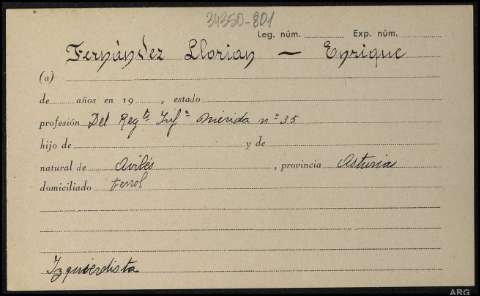 34350-801
Leg. núm. Exp. núm.
Fernández Llorian — Enrique
(a)
de años en 19 , estado
profesión Del Regtº Infª Mérida nº 35
hijo de y de
natural de Avilés , provincia Asturias
domiciliado Ferrol
Izquierdista
ARG